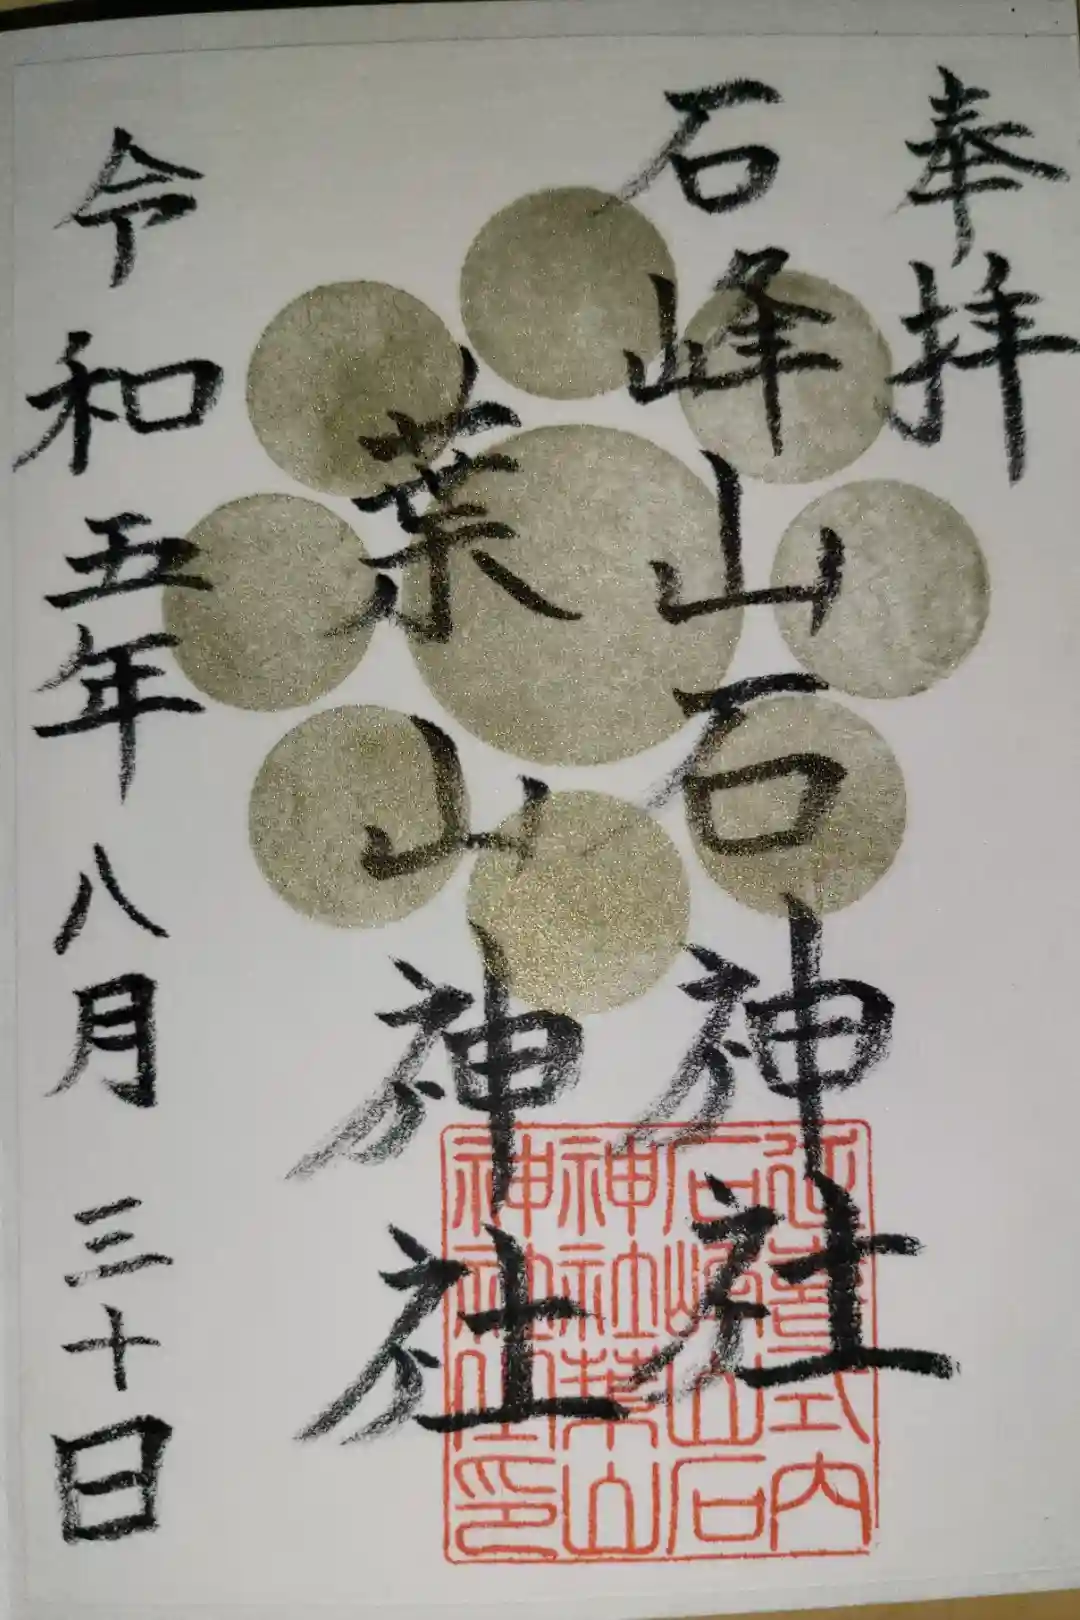 奉拝
石峰山石神社
葉山神社
令和五年八月三十日
延喜式内
石峰山石
神社葉山
神社之印